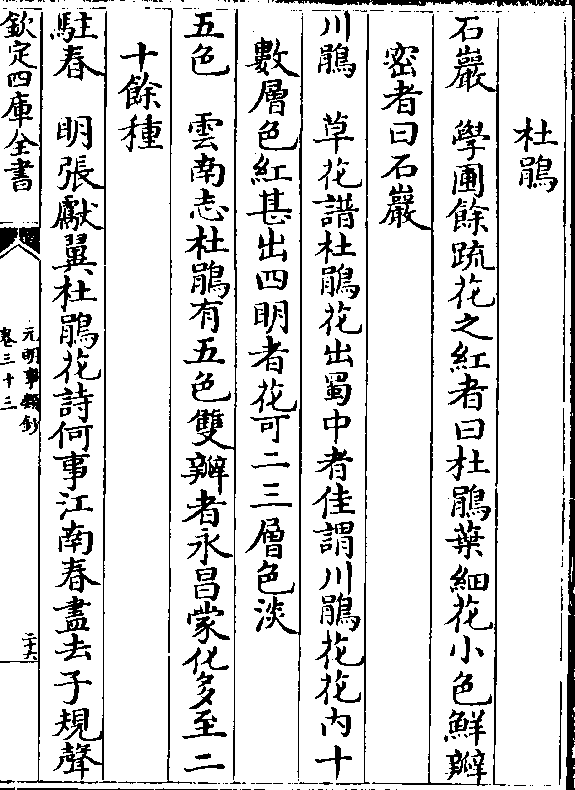 杜鵑
石巖　學圃餘疏花之紅者曰杜鵑葉細花小色鮮瓣
密者曰石巖
川鵑　草花譜杜鵑花出蜀中者佳謂川鵑花花内十
數層色紅甚出四明者花可二三層色淡
五色　雲南志杜鵑有五色雙瓣者永昌蒙化多至二
十餘種
駐春　明張獻翼杜鵑花詩何事江南春盡去子規聲
欽定四庫全書
元明事類鈔
卷三十三
二十六